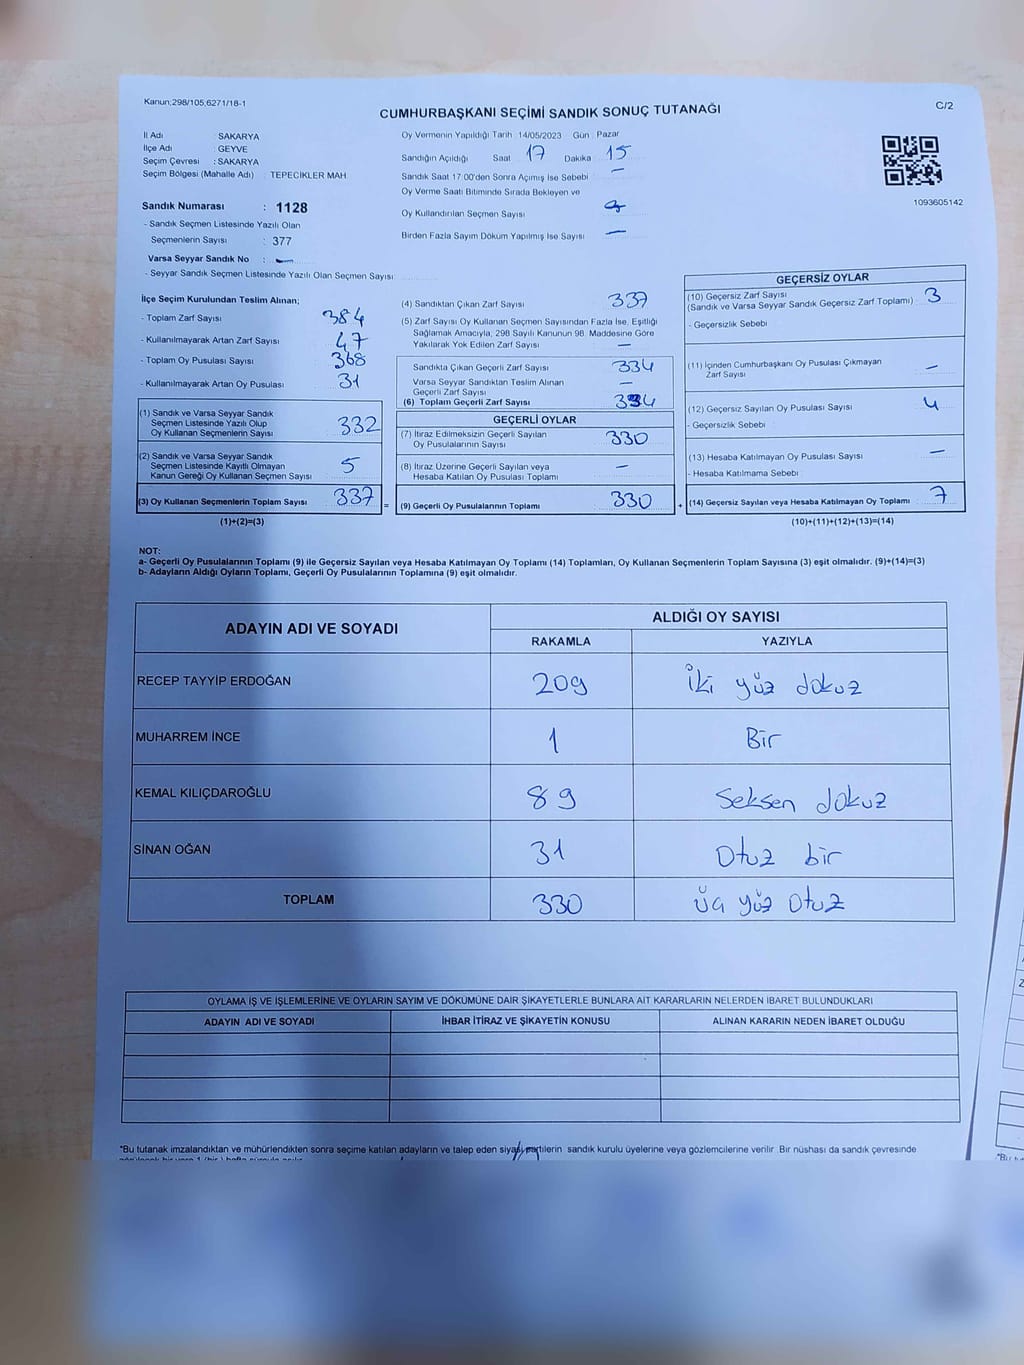 Kanun;298/105,6271/18-1
C/2
CUMHURBAŞKANI SEÇİMİ SANDIK SONUÇ TUTANAĞI
İl Adı SAKARYA
İlçe Adı : GEYVE
Seçim Çevresi : SAKARYA
Seçim Bölgesi (Mahalle Adı) : TEPECİKLER MAH
Sandık Numarası : 1128
- Sandık Seçmen Listesinde Yazılı Olan
Seçmenlerin Sayısı : 377
Varsa Seyyar Sandık No : -
- Seyyar Sandık Seçmen Listesinde Yazılı Olan Seçmen Sayısı:
Oy Vermenin Yapıldığı Tarih : 14/05/2023 Gün : Pazar
Sandığın Açıldığı Saat 17 Dakika 15
Sandık Saat 17:00'den Sonra Açımış İse Sebebi -
Oy Verme Saati Bitiminde Sırada Bekleyen ve
Oy Kullandırılan Seçmen Sayısı
Birden Fazla Sayım Döküm Yapılmış İse Sayısı -
1093605142
İlçe Seçim Kurulundan Teslim Alınan;
- Toplam Zarf Sayısı 384
- Kullanılmayarak Artan Zarf Sayısı 47
- Toplam Oy Pusulası Sayısı 368
- Kullanılmayarak Artan Oy Pusulası 31
(1) Sandık ve Varsa Seyyar Sandık
Seçmen Listesinde Yazılı Olup
Oy Kullanan Seçmenlerin Sayısı 332
(2) Sandık ve Varsa Seyyar Sandık
Seçmen Listesinde Kayıtlı Olmayan
Kanun Gereği Oy Kullanan Seçmen Sayısı 5
(3) Oy Kullanan Seçmenlerin Toplam Sayısı 337
(1)+(2)=(3)
(4) Sandıktan Çıkan Zarf Sayısı 337
(5) Zarf Sayısı Oy Kullanan Seçmen Sayısından Fazla İse, Eşitliği
Sağlamak Amacıyla, 298 Sayılı Kanunun 98. Maddesine Göre
Yakılarak Yok Edilen Zarf Sayısı -
Sandıkta Çıkan Geçerli Zarf Sayısı 334
Varsa Seyyar Sandıktan Teslim Alınan
Geçerli Zarf Sayısı -
(6) Toplam Geçerli Zarf Sayısı 334
GEÇERLİ OYLAR
(7) İtiraz Edilmeksizin Geçerli Sayılan
Oy Pusulalarının Sayısı 330
(8) İtiraz Üzerine Geçerli Sayılan veya
Hesaba Katılan Oy Pusulası Toplamı -
= (9) Geçerli Oy Pusulalarının Toplamı 330 +
GEÇERSİZ OYLAR
(10) Geçersiz Zarf Sayısı
(Sandık ve Varsa Seyyar Sandık Geçersiz Zarf Toplamı) 3
- Geçersizlik Sebebi
(11) İçinden Cumhurbaşkanı Oy Pusulası Çıkmayan
Zarf Sayısı -
(12) Geçersiz Sayılan Oy Pusulası Sayısı 4
- Geçersizlik Sebebi
(13) Hesaba Katılmayan Oy Pusulası Sayısı -
- Hesaba Katılmama Sebebi
(14) Geçersiz Sayılan veya Hesaba Katılmayan Oy Toplamı 7
(10)+(11)+(12)+(13)=(14)
NOT:
a- Geçerli Oy Pusulalarının Toplamı (9) ile Geçersiz Sayılan veya Hesaba Katılmayan Oy Toplamı (14) Toplamları, Oy Kullanan Seçmenlerin Toplam Sayısına (3) eşit olmalıdır. (9)+(14)=(3)
b- Adayların Aldığı Oyların Toplamı, Geçerli Oy Pusulalarının Toplamına (9) eşit olmalıdır.
ADAYIN ADI VE SOYADI ALDIĞI OY SAYISI
RAKAMLA YAZIYLA
RECEP TAYYİP ERDOĞAN 209 iki yüz dokuz
MUHARREM İNCE 1 Bir
KEMAL KILIÇDAROĞLU 89 Seksen dokuz
SİNAN OĞAN 31 Otuz bir
TOPLAM 330 üç yüz Otuz
OYLAMA İŞ VE İŞLEMLERİNE VE OYLARIN SAYIM VE DÖKÜMÜNE DAİR ŞİKAYETLERLE BUNLARA AİT KARARLARIN NELERDEN İBARET BULUNDUKLARI
ADAYIN ADI VE SOYADI İHBAR İTİRAZ VE ŞİKAYETİN KONUSU ALINAN KARARIN NEDEN İBARET OLDUĞU
*Bu tutanak imzalandıktan ve mühürlendikten sonra seçime katılan adayların ve talep eden siyasi partilerin sandık kurulu üyelerine veya gözlemcilerine verilir .Bir nüshası da sandık çevresinde